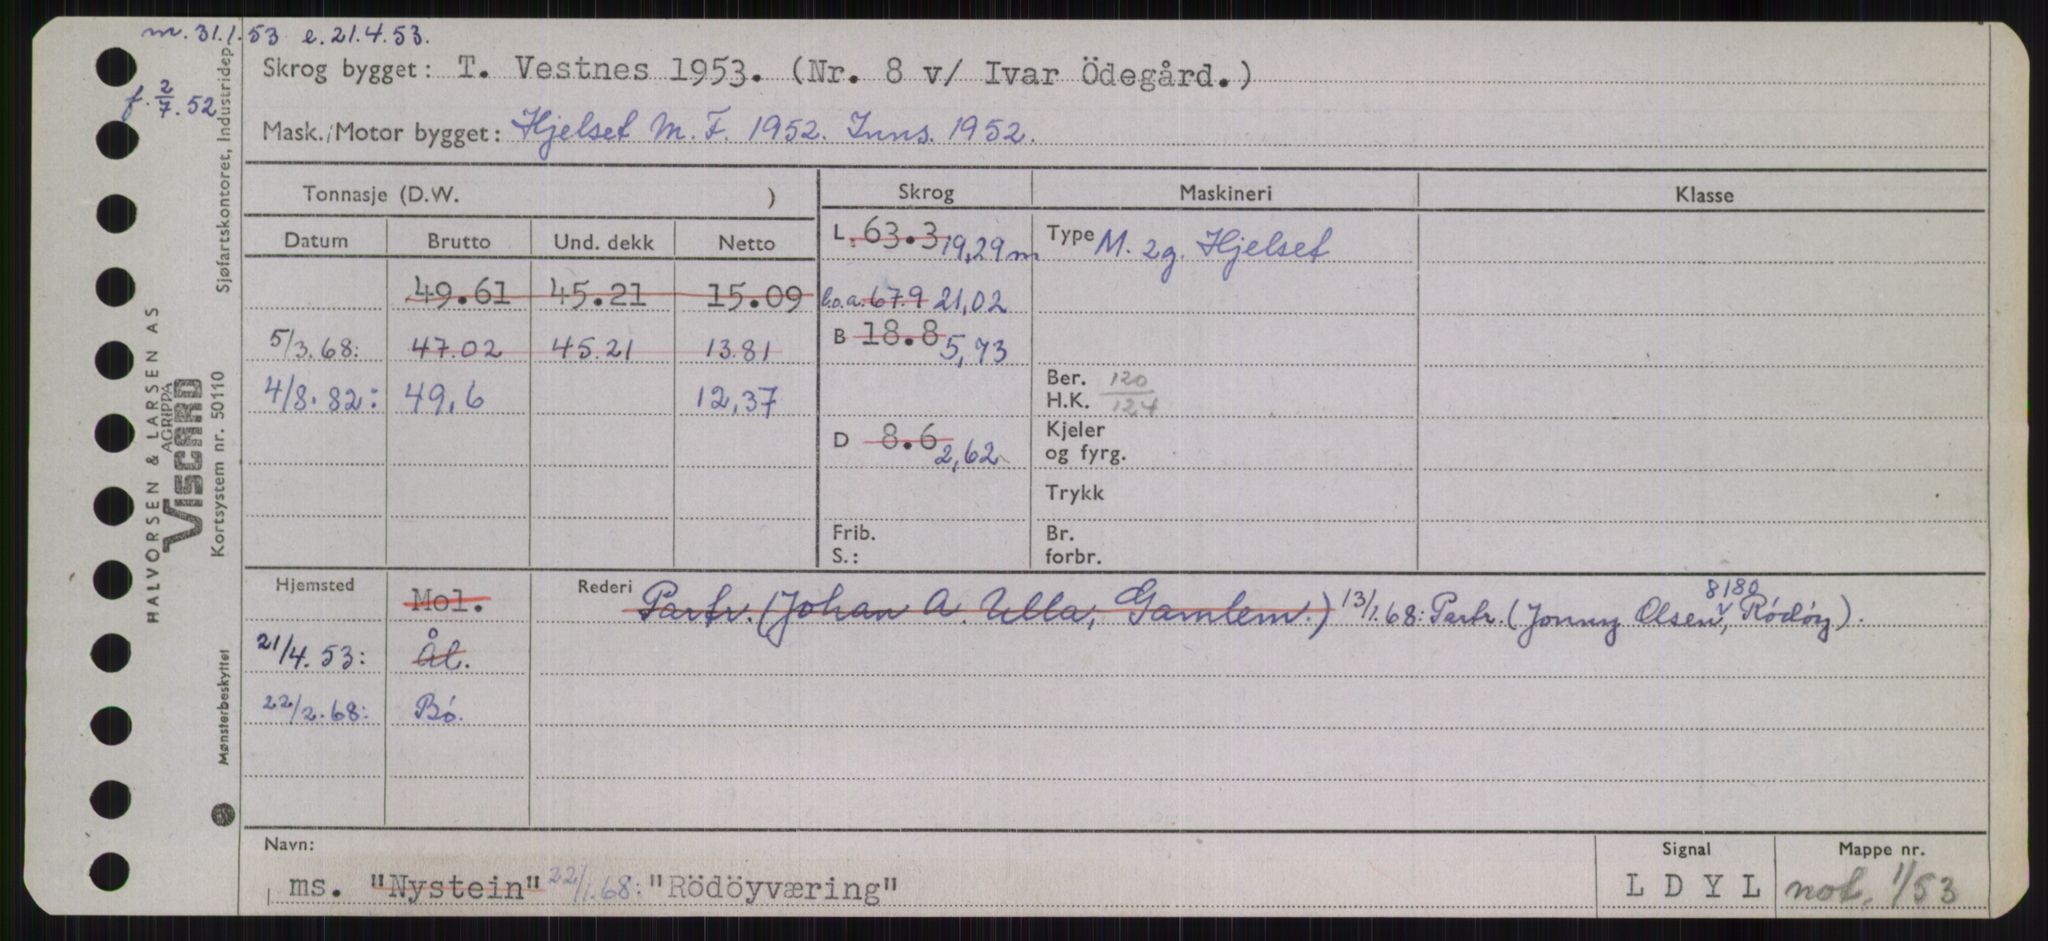 m. 31.1.53 e. 21.4.53.
f. 2/7.52
Skrog bygget: T. Vestnes 1953. (Nr. 8 v/ Ivar Ödegård.)
Mask./Motor bygget: Hjelset M.F. 1952. Inns. 1952.
Tonnasje (D.W. ) Skrog Maskineri Klasse
Datum Brutto Und. dekk Netto
L. 63.3 19,29 m Type M. 2g. Hjelset
49.61 45.21 15.09
l.o.a. 67.9 21,02
5/3.68: 47.02 45.21 13.81
B 18.8 5,73
4/8.82: 49,6 12,37
Ber. H.K. 120/124
D 8.6 2,62
Kjeler og fyrg.
Trykk
Frib. S.:
Br. forbr.
Hjemsted Mol. Rederi Partr. (Johan A. Ulla, Gamlem.) 13/1.68: Partr. (Jonny Olsen, 8180 Rödöy).
21/4.53: Ål.
22/2.68: Bö.
Navn: Signal Mappe nr.
ms. "Nystein" 22/1.68: "Rödöyværing" L D Y L not. 1/53
HALVORSEN & LARSEN AS
VISCARD
AGRIPPA
Kortsystem nr. 50110
Sjøfartskontoret, Industridep
Mønsterbeskyttet